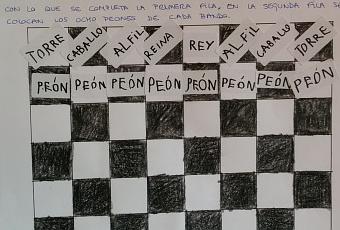 CON LO QUE SE COMPLETA LA PRIMERA FILA, EN LA SEGUNDA FILA SE
COLOCAN LOS OCHO PEONES DE CADA BANDO.
TORRE CABALLO ALFIL REINA REY ALFIL CABALLO TORRE
PEÓN PEÓN PEÓN PEÓN PEÓN PEÓN PEÓN PEÓN